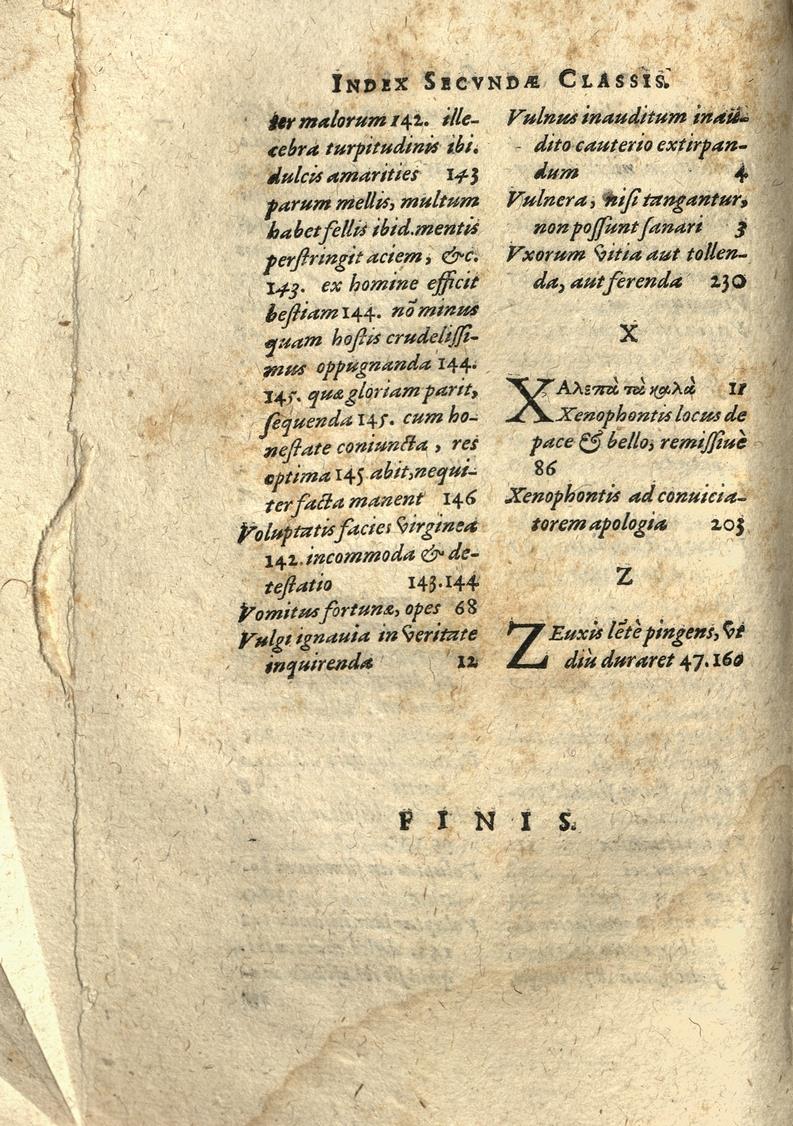 INDEX SECVNDÆ CLASSIS.
ter malorum 142. ille-
cebra turpitudinis ibi.
dulcis amarities 143
parum mellis, multum
habet fellis ibid. mentis
perſtringit aciem, &c.
143. ex homine efficit
beſtiam 144. nõ minus
quam hoſtis crudeliſſi-
mus oppugnanda 144.
145. quæ gloriam parit,
ſequenda 145. cum ho-
neſtate coniuncta, res
optima 145 abit, nequi-
ter facta manent 146
Voluptatis facies virginea
142. incommoda & de-
teſtatio 143.144
Vomitus fortunæ, opes 68
Vulgi ignauia in veritate
inquirenda 12
Vulnus inauditum inau-
dito cauterio extirpan-
dum 4
Vulnera, niſi tangantur,
non poſſunt ſanari 3
Vxorum vitia aut tollen-
da, aut ferenda 230
X
XΑλεπὰ τὰ καλὰ 11
Xenophontis locus de
pace & bello, remiſſiuè
86
Xenophontis ad conuicia-
torem apologia 203
Z
ZEuxis lẽtè pingens, vt
diù duraret 47.160
FINIS.